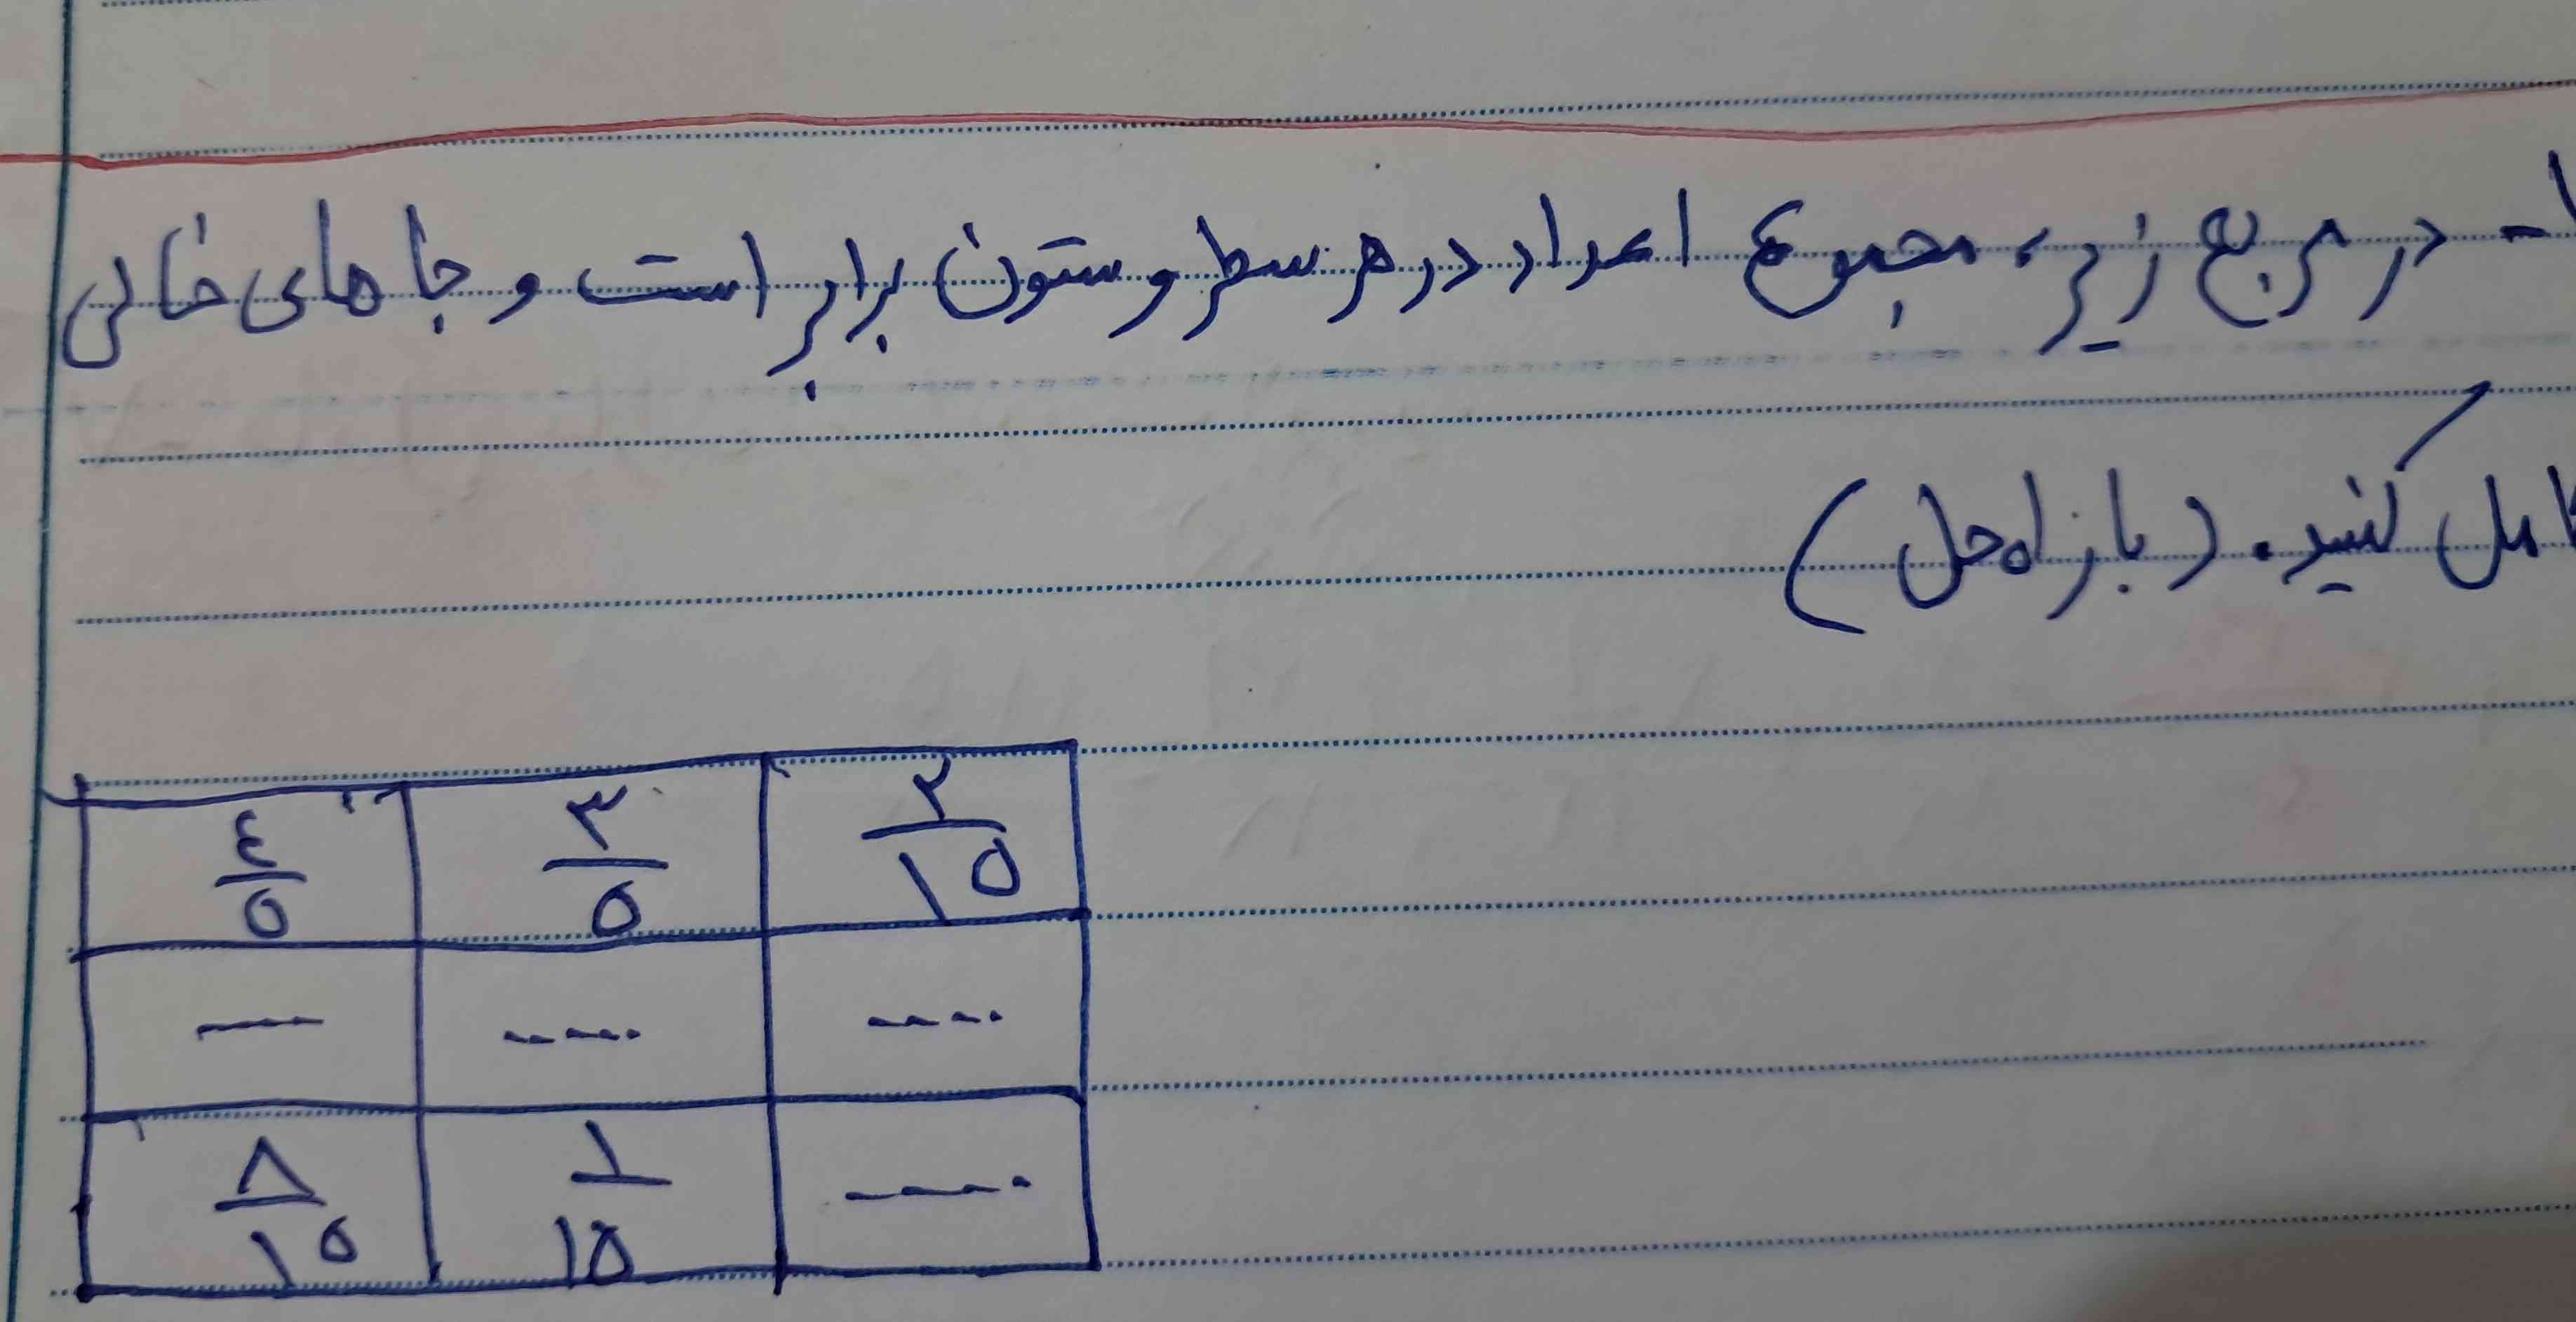 ۱- در مربع زیر، مجموع اعداد در هر سطر و ستون برابر است و جاهای خالی
کامل کنید. (با راه حل)
۴/۵ ۳/۵ ۲/۱۵
---- ----- ----
۸/۱۵ ۱/۱۵ -----